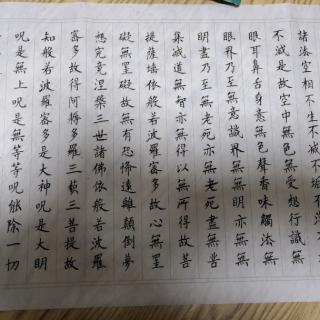 諸法空相不生不滅不垢不淨
不減是故空中無色無受想行識無
眼耳鼻舌身意無色聲香味觸法無
眼界乃至無意識界無無明亦無無
明盡乃至無老死亦無老死盡無苦
集滅道無智亦無得以無所得故菩
提薩埵依般若波羅蜜多故心無罣
礙無罣礙故無有恐怖遠離顛倒夢
想究竟涅槃三世諸佛依般若波羅
蜜多故得阿耨多羅三藐三菩提故
知般若波羅蜜多是大神呪是大明
呪是無上呪是無等等呪能除一切